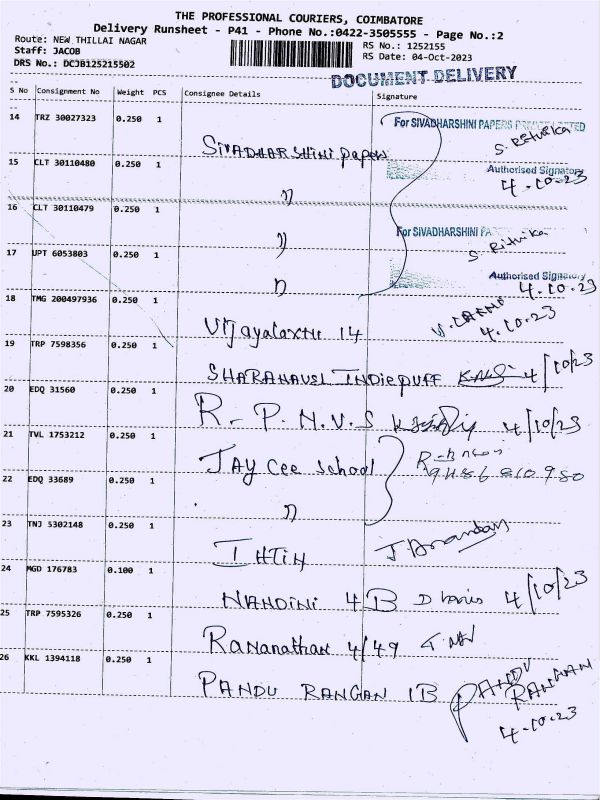 THE PROFESSIONAL COURIERS, COIMBATORE
Delivery Runsheet - P41 - Phone No.:0422-3505555 - Page No.:2
Route: NEW THILLAI NAGAR RS No.: 1252155
Staff: JACOB RS Date: 04-Oct-2023
DRS No.: DCJB125215502
DOCUMENT DELIVERY
S No Consignment No Weight PCS Consignee Details Signature
14 TRZ 30027323 0.250 1 For SIVADHARSHINI PAPERS PRIVATE LIMITED
Sivadharshini papers S. Rithika
15 CLT 30110480 0.250 1 Authorised Signatory
" 4.10.23
16 CLT 30110479 0.250 1 For SIVADHARSHINI PA
" S. Rithika
17 UPT 6053803 0.250 1 Authorised Signatory
" 4.10.23
18 TMG 200497936 0.250 1
Vijayalaxmi 14 4.10.23
19 TRP 7598356 0.250 1
4/10/23
20 EDQ 31560 0.250 1
R. P. N. V. S 4/10/23
21 TVL 1753212 0.250 1
JAY Cee School
22 EDQ 33689 0.250 1
"
23 TNJ 5302148 0.250 1
24 MGD 176783 0.100 1
NANDINI 4 B 4/10/23
25 TRP 7595326 0.250 1
Ramanathan 4/49
26 KKL 1394118 0.250 1
PANDU RANGAN 1B PANDU RANGAN
4.10.23